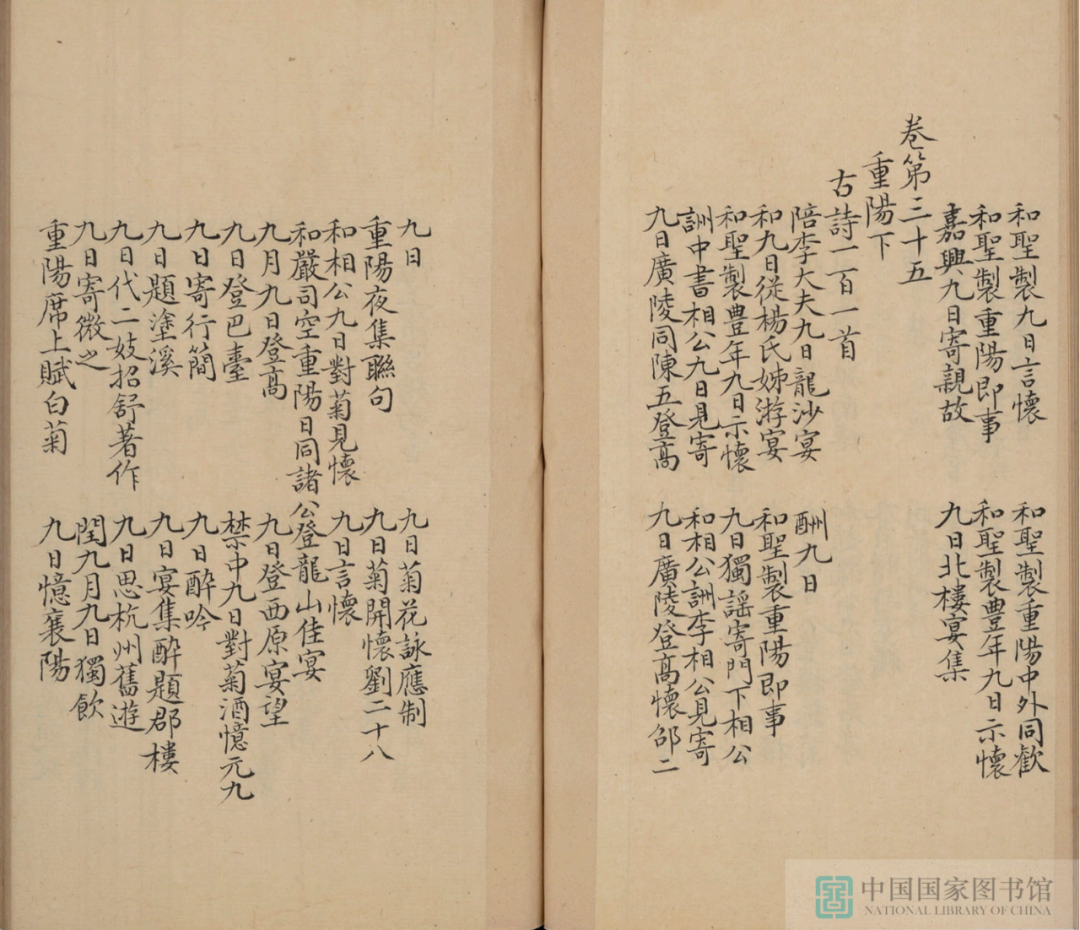 和聖製九日言懷　和聖製重陽中外同歡
和聖製重陽即事　和聖製豊年九日示懷
嘉興九日寄親故　九日北樓宴集
卷第三十五
重陽下
古詩一百一首
陪李大夫九日龍沙宴　酬九日
和九日從楊氏姊游宴　和聖製重陽即事
和聖製豊年九日示懷　九日獨謡寄門下相公
訓中書相公九日見寄　和相公訓李相公見寄
九日廣陵同陳五登高　九日廣陵登高懷邵二
九日　九日菊花詠應制
重陽夜集聯句　九日菊開懷劉二十八
和相公九日對菊見懷　九日言懷
和嚴司空重陽日同諸公登龍山佳宴
九月九日登高　九日登西原宴望
九日登巴臺　禁中九日對菊酒憶元九
九日寄行簡　九日醉吟
九日題塗溪　九日宴集醉題郡樓
九日代二妓招舒著作　九日思杭州舊遊
九日寄微之　閏九月九日獨飲
重陽席上賦白菊　九日憶襄陽
中国国家图书馆
NATIONAL LIBRARY OF CHINA